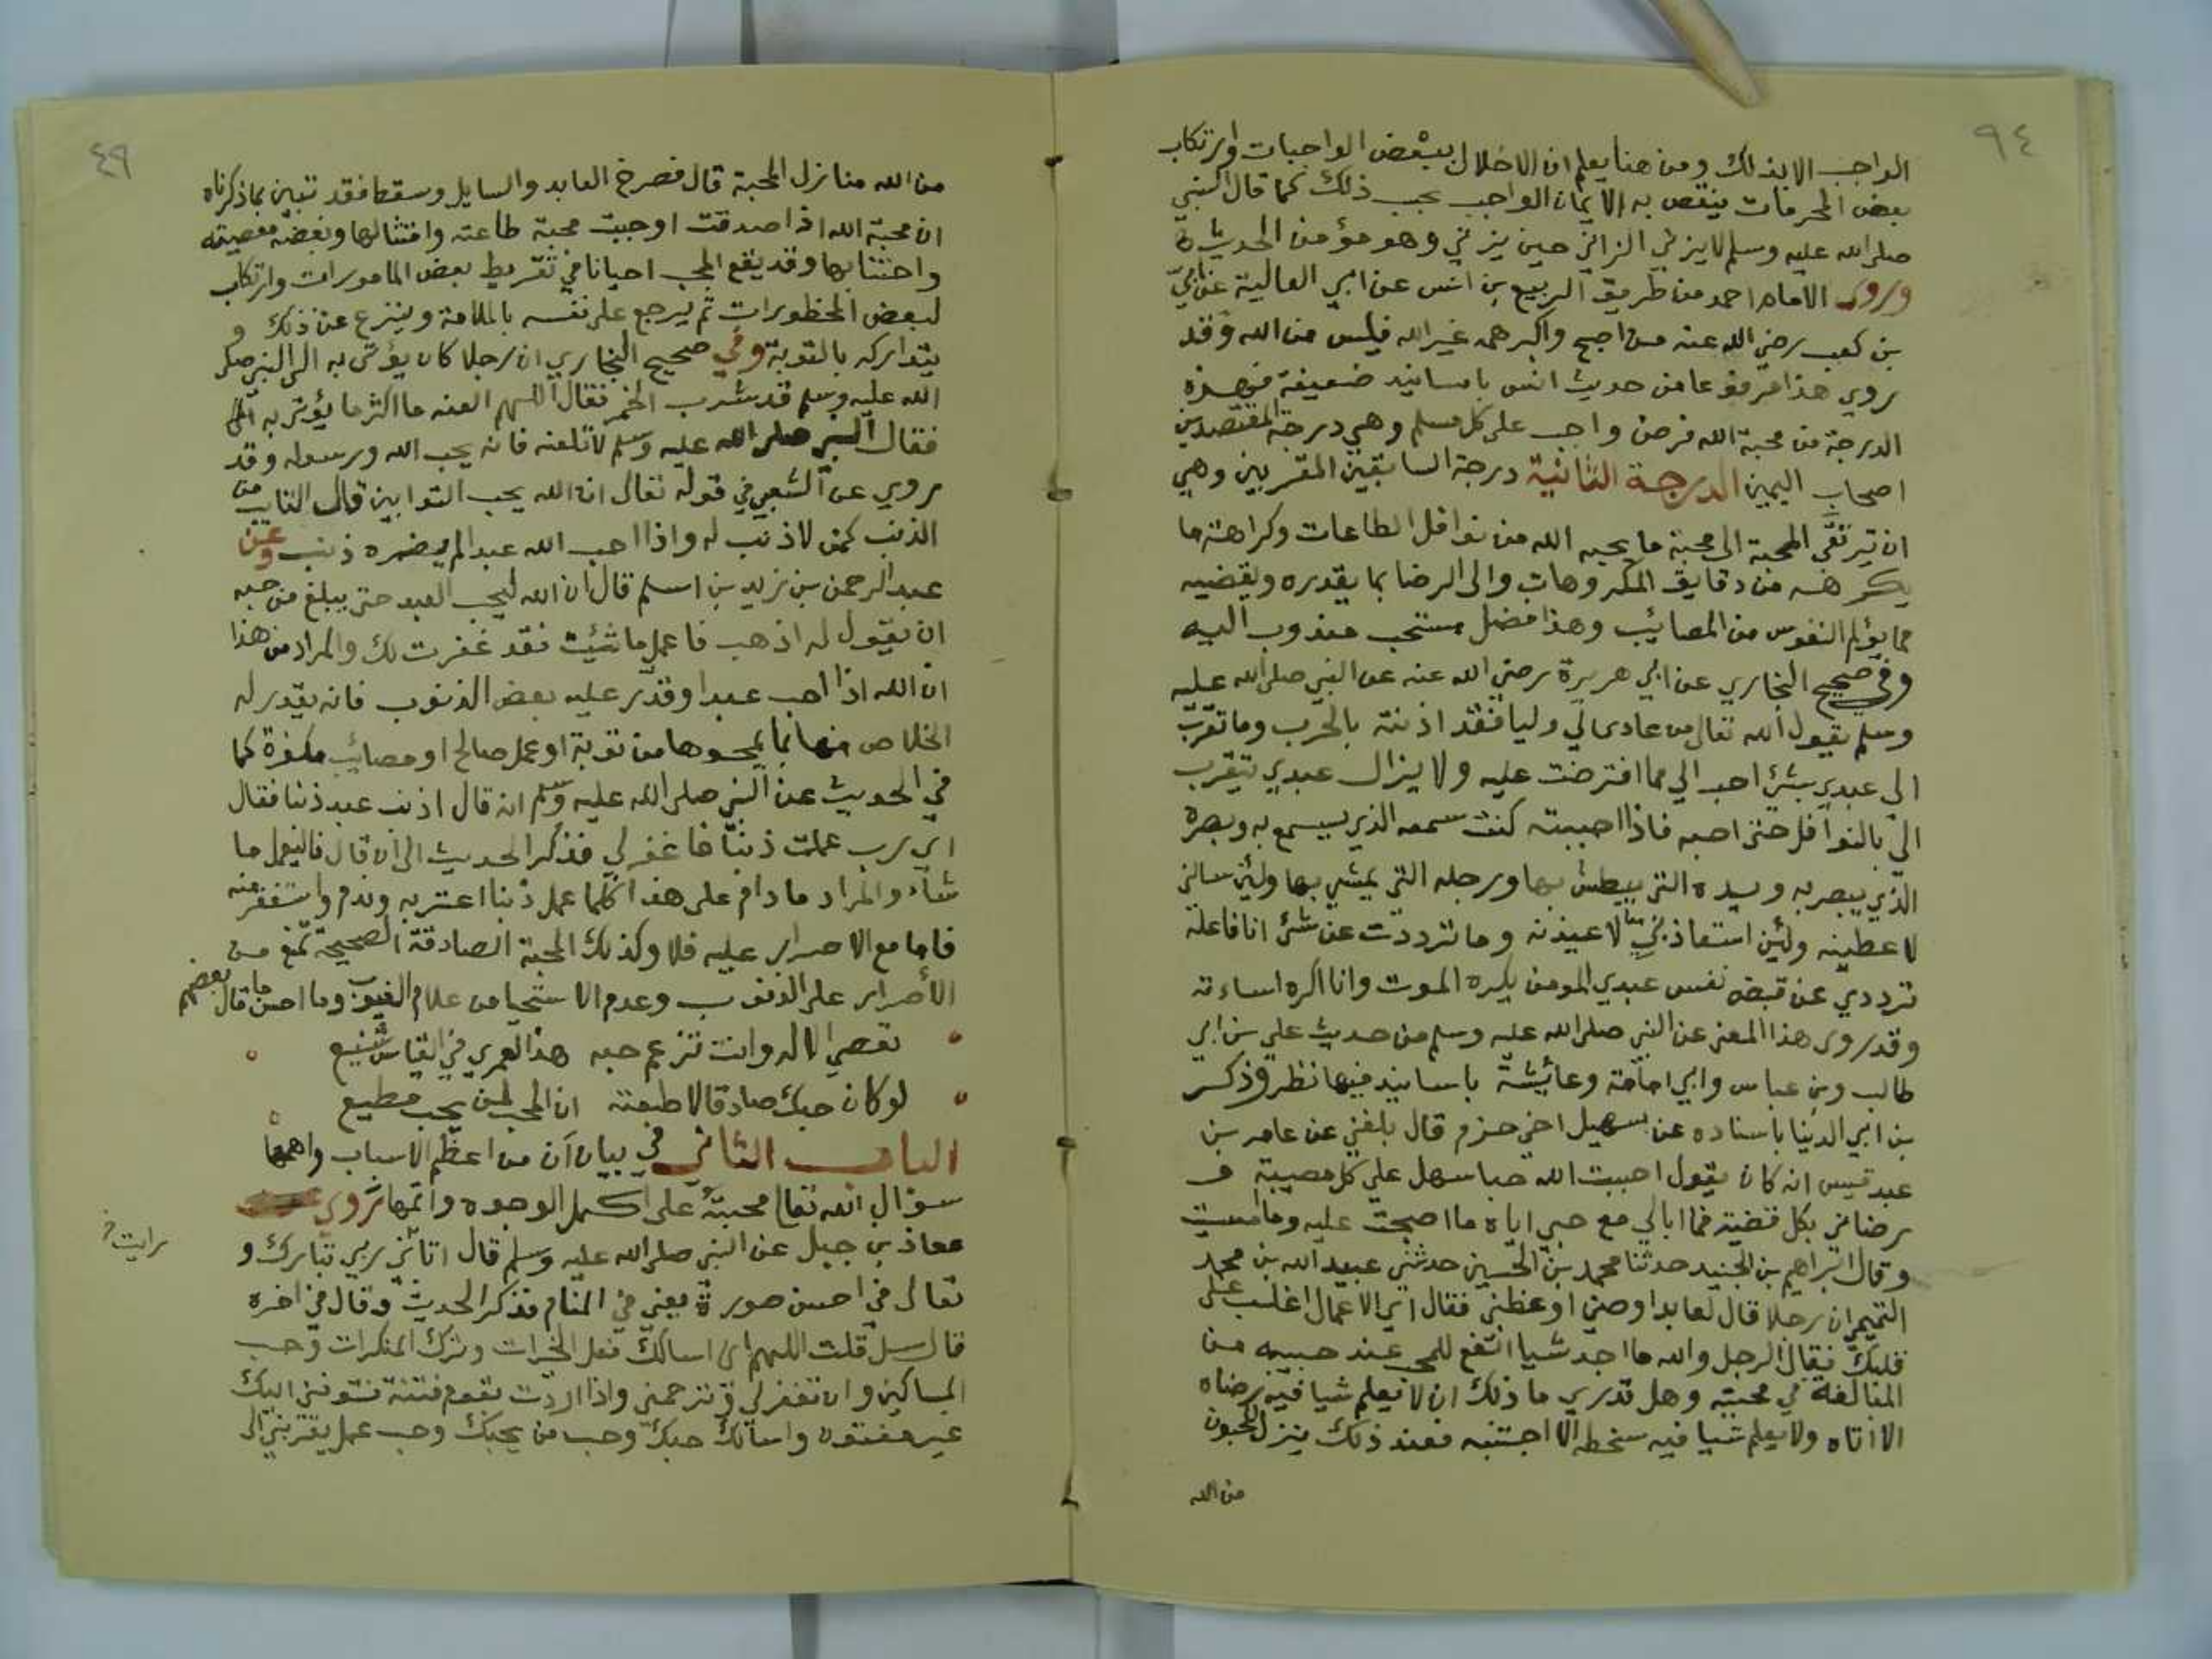 ٩٤
الواجب الا بذلك ومن هنا يعلم ان الاخلال ببعض الواجبات وارتكاب
بعض المحرمات ينقص به الايمان الواجب بحب ذلك كما قال النبي
صلى الله عليه وسلم لا يزني الزاني حين يزني وهو مؤمن الحديث
وروى الامام احمد من طريق الربيع بن انس عن ابي العالية عن ابيّ
بن كعب رضي الله عنه من اصبح واكبر همه غير الله فليس من الله وقد
روي هذا مرفوعا من حديث انس باسانيد ضعيفة فهذه
الدرجة من محبة الله فرض واجب على كل مسلم وهي درجة المقتصدين
اصحاب اليمين الدرجة الثانية درجة السابقين المقربين وهي
ان ترتقي المحبة الى محبة ما يحبه الله من نوافل الطاعات وكراهة ما
يكرهه من دقايق المكروهات والى الرضا بما يقدره ويقضيه
مما يؤلم النفوس من المصائب وهذا فضل مستحب مندوب اليه
وفي صحيح البخاري عن ابي هريرة رضي الله عنه عن النبي صلى الله عليه
وسلم يقول الله تعالى من عادى لي وليا فقد اذنته بالحرب وما تقرب
الي عبدي بشئ احب الي مما افترضت عليه ولا يزال عبدي يتقرب
الي بالنوافل حتى احبه فاذا احببته كنت سمعه الذي يسمع به وبصره
الذي يبصر به ويده التي يبطش بها ورجله التي يمشي بها ولئن سالني
لاعطينه ولئن استعاذ بي لاعيذنه وما ترددت عن شئ انا فاعله
ترددي عن قبض نفس عبدي المومن يكره الموت وانا اكره اساءته
وقد روى هذا المعنى عن النبي صلى الله عليه وسلم من حديث علي بن ابي
طالب وبن عباس وابي امامة وعائشة باسانيد فيها نظر وذكر
بن ابي الدنيا باسناده عن سهيل اخي حزم قال بلغني عن عامر بن
عبد قيس انه كان يقول احببت الله حبا سهل علي كل مصيبة و
رضاني بكل قضية فما ابالي مع حبي اياه ما اصبحت عليه وما امسيت
وقال ابراهيم بن الجنيد حدثنا محمد بن الحسين حدثني عبيد الله بن محمد
التميمي ان رجلا قال لعابد اوصني او عظني فقال اي الاعمال اغلب على
قلبك فقال الرجل والله ما اجد شيا انفع للمحب عند حبيبه من
المبالغة في محبته وهل تدري ما ذلك ان لا يعلم شيا فيه رضاه
الا اتاه ولا يعلم شيا فيه سخطه الا اجتنبه فعند ذلك ينزل المحبون
من الله
٤٩
من الله منازل المحبة قال فصرخ العابد والسايل وسقطا فقد تبين بما ذكرناه
ان محبة الله اذا صدقت اوجبت محبة طاعته وامتثالها وبغضه معصيته
واجتنابها وقد يقع المحب احيانا في تفريط بعض المامورات وارتكاب
لبعض المحظورات ثم يرجع على نفسه بالملامة وينزع عن ذلك و
يتداركه بالتوبة وفي صحيح البخاري ان رجلا كان يؤتى به الى النبي صلى
الله عليه وسلم قد شرب الخمر فقال اللهم العنه ما اكثر ما يؤتى به
فقال النبي صلى الله عليه وسلم لا تلعنه فانه يحب الله ورسوله وقد
روي عن الشعبي في قوله تعالى ان الله يحب التوابين قال التايب من
الذنب كمن لا ذنب له واذا احب الله عبدا لم يضره ذنب وعن
عبد الرحمن بن زيد بن اسلم قال ان الله ليحب العبد حتى يبلغ من حبه
ان يقول له اذهب فاعمل ما شئت فقد غفرت لك والمراد من هذا
ان الله اذا احب عبدا وقدّر عليه بعض الذنوب فانه يقدر له
الخلاص منها بما يمحوها من توبة او عمل صالح او مصائب مكفرة كما
في الحديث عن النبي صلى الله عليه وسلم انه قال اذنب عبد ذنبا فقال
اي رب عملت ذنبا فاغفر لي فذكر الحديث الى ان قال فاليعمل ما
شاء والمراد ما دام على هذا كلما عمل ذنبا اعترف به وندم واستغفر منه
فاما مع الاصرار عليه فلا وكذلك المحبة الصادقة الصحيحة تمنع من
الاصرار على الذنوب وعدم الاستحيا من علام الغيوب وما احسن ما قال بعضهم
تعصي الاله وانت تزعم حبه هذا لعمري في القياس شنيع
لو كان حبك صادقا لاطعته ان المحب لمن يحب مطيع
الباب الثاني في بيان ان من اعظم الاسباب واهمها
سؤال الله تعالى محبته على اكمل الوجوه واتمها روي
معاذ بن جبل عن النبي صلى الله عليه وسلم قال اتاني ربي تبارك و
رايت
تعالى في احسن صورة يعني في المنام فذكر الحديث وقال في اخره
قال سل قلت اللهم اني اسالك فعل الخيرات وترك المنكرات وحب
المساكين وان تغفر لي وترحمني واذا اردت بقوم فتنة فتوفني اليك
غير مفتون واسالك حبك وحب من يحبك وحب عمل يقربني الى